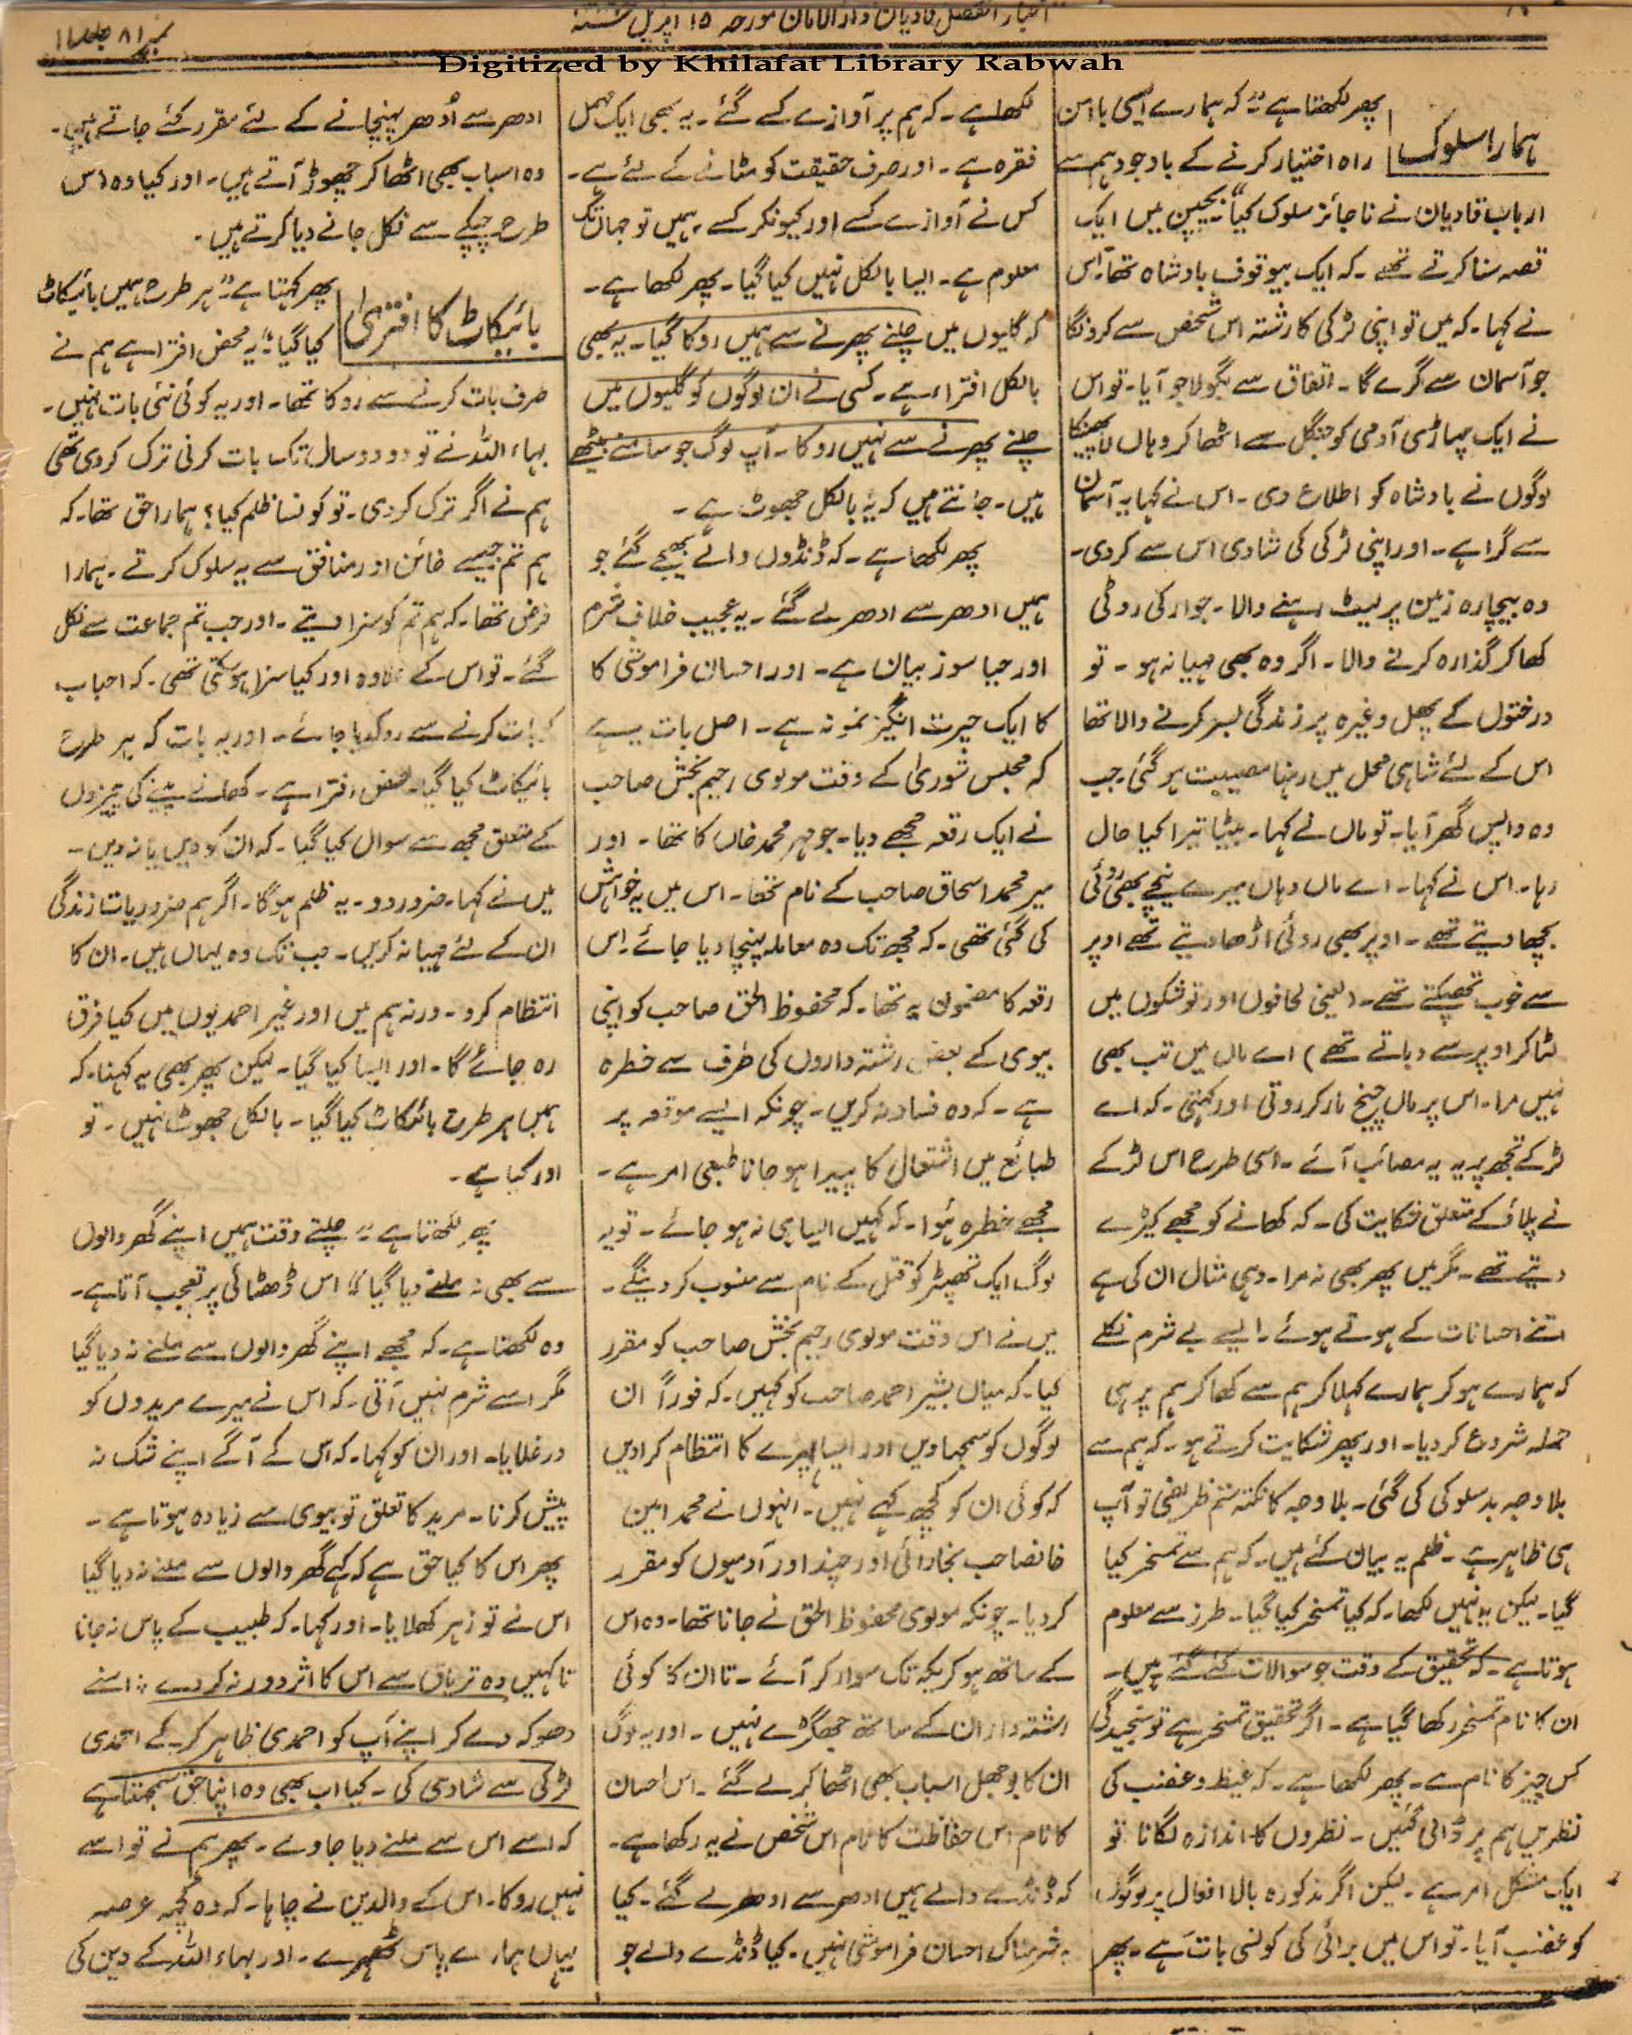 اخبار الفضل قادیان دارالامان مورخہ ۱۵ اپریل
نمبر ۸۱ جلد ۱۱
Digitized by Khilafat Library Rabwah
ہمارا سلوک
پھر لکھتا ہے "کہ ہمارے ایسی با امن
راہ اختیار کرنے کے باوجود ہم سے
ارباب قادیان نے ناجائز سلوک کیا" بچپن میں ایک
قصہ سنا کرتے تھے ۔ کہ ایک بیوقوف بادشاہ تھا۔ اس
نے کہا ۔ کہ میں تو اپنی لڑکی کا رشتہ اس شخص سے کرونگا
جو آسمان سے گرے گا ۔ اتفاق سے بگولا جو آیا ۔ تو اس
نے ایک پہاڑی آدمی کو جنگل سے اٹھا کر وہاں لا پھینکا
لوگوں نے بادشاہ کو اطلاع دی ۔ اس نے کہا یہ آسمان
سے گرا ہے ۔ اور اپنی لڑکی کی شادی اس سے کر دی ۔
وہ بیچارہ زمین پر لیٹ رہنے والا ۔ جوار کی روٹی
کھا کر گذارہ کرنے والا ۔ اگر وہ بھی مہیا نہ ہو ۔ تو
درختوں کے پھل وغیرہ پر زندگی بسر کرنے والا تھا
اس کے لئے شاہی محل میں رہنا مصیبت ہو گئی ۔ جب
وہ واپس گھر آیا ۔ تو ماں نے کہا ۔ بیٹا تیرا کیا حال
رہا ۔ اس نے کہا ۔ اے ماں وہاں میرے نیچے بھی روئی
بچھا دیتے تھے ۔ اوپر بھی روئی اڑھا دیتے تھے اوپر
سے خوب تھپکتے تھے ۔ (یعنی لحافوں اور توشکوں میں
لٹا کر اوپر سے دباتے تھے) اے ماں میں تب بھی
نہیں مرا ۔ اس پر ماں چیخ مار کر روتی اور کہتی ۔ کہ اے
لڑکے تجھ پر یہ یہ مصائب آئے ۔ اسی طرح اس لڑکے
نے پلاؤ کے متعلق شکایت کی ۔ کہ کھانے کو مجھے کیڑے
دیتے تھے ۔ مگر میں پھر بھی نہ مرا ۔ وہی مثال ان کی ہے
اتنے احسانات کے ہوتے ہوئے ۔ ایسے بے شرم نکلے
کہ ہمارے ہو کر ہمارے کہلا کر ہم سے کھا کر ہم پر ہی
حملہ شروع کر دیا ۔ اور پھر شکایت کرتے ہو ۔ کہ ہم سے
بلا وجہ بدسلوکی کی گئی ۔ بلا وجہ کا نکتہ ستم ظریفی تو آپ
ہی ظاہر ہے ۔ ظلم یہ بیان کئے ہیں ۔ کہ ہم سے تمسخر کیا
گیا ۔ لیکن یہ نہیں لکھا ۔ کہ کیا تمسخر کیا گیا ۔ طرز سے معلوم
ہوتا ہے ۔ کہ تحقیق کے وقت جو سوالات کئے گئے ہیں ۔
ان کا نام تمسخر رکھا گیا ہے ۔ اگر تحقیق تمسخر ہے تو سنجیدگی
کس چیز کا نام ہے ۔ پھر لکھا ہے ۔ کہ غیظ و غضب کی
نظریں ہم پر ڈالی گئیں ۔ نظروں کا اندازہ لگانا تو
ایک مشکل امر ہے ۔ لیکن اگر مذکورہ بالا افعال پر لوگوں
کو غضب آیا ۔ تو اس میں برائی کی کونسی بات ہے ۔ پھر
لکھا ہے ۔ کہ ہم پر آوازے کسے گئے ۔ یہ بھی ایک مہمل
فقرہ ہے ۔ اور صرف حقیقت کو مٹانے کے لئے ہے ۔
کس نے آوازے کسے اور کیونکر کسے ۔ ہمیں تو جہاں تک
معلوم ہے ۔ ایسا بالکل نہیں کیا گیا ۔ پھر لکھا ہے ۔
کہ گلیوں میں چلنے پھرنے سے ہمیں روکا گیا ۔ یہ بھی
بالکل افتراء ہے ۔ کسی نے ان لوگوں کو گلیوں میں
چلنے پھرنے سے نہیں روکا ۔ آپ لوگ جو سامنے بیٹھے
ہیں ۔ جانتے ہیں کہ یہ بالکل جھوٹ ہے ۔
پھر لکھا ہے ۔ کہ ڈنڈوں والے بھیجے گئے جو
ہمیں ادھر سے ادھر لے گئے ۔ یہ عجیب خلاف شرم
اور حیا سوز بیان ہے ۔ اور احسان فراموشی کا
کا ایک حیرت انگیز نمونہ ہے ۔ اصل بات یہ ہے
کہ مجلس شوریٰ کے وقت مولوی رحیم بخش صاحب
نے ایک رقعہ مجھے دیا ۔ جو مہر محمد خاں کا تھا ۔ اور
میر محمد اسحاق صاحب کے نام تھا ۔ اس میں یہ خواہش
کی گئی تھی ۔ کہ مجھ تک وہ معاملہ پہنچا دیا جائے ۔ اس
رقعہ کا مضمون یہ تھا ۔ کہ محفوظ الحق صاحب کو اپنی
بیوی کے بعض رشتہ داروں کی طرف سے خطرہ
ہے ۔ کہ وہ فساد نہ کریں ۔ چونکہ ایسے موقعہ پر
طبائع میں اشتعال کا پیدا ہو جانا طبعی امر ہے ۔
مجھے خطرہ ہوا ۔ کہ کہیں ایسا ہی نہ ہو جائے ۔ تو یہ
لوگ ایک تھپڑ کو قتل کے نام سے منسوب کر دینگے ۔
میں نے اس وقت مولوی رحیم بخش صاحب کو مقرر
کیا ۔ کہ میاں بشیر احمد صاحب کو کہیں ۔ کہ فوراً ان
لوگوں کو سمجھا دیں اور ایسا پہرے کا انتظام کرا دیں
کہ کوئی ان کو کچھ کہے نہیں ۔ انہوں نے محمد امین
خانصاحب بخارائی اور چند اور آدمیوں کو مقرر
کر دیا ۔ چونکہ مولوی محفوظ الحق نے جانا تھا ۔ وہ اس
کے ساتھ ہو کر یکہ تک سوار کر آئے ۔ تا ان کا کوئی
رشتہ دار ان کے ساتھ جھگڑے نہیں ۔ اور یہ لوگ
ان کا بوجھل اسباب بھی اٹھا کر لے گئے ۔ اس احسان
کا نام اس حفاظت کا نام اس شخص نے یہ رکھا ہے ۔
کہ ڈنڈے والے ہمیں ادھر سے ادھر لے گئے ۔ کیا
یہ شرمناک احسان فراموشی نہیں ۔ کیا ڈنڈے والے جو
ادھر سے اُدھر پہنچانے کے لئے مقرر کئے جاتے ہیں ۔
وہ اسباب بھی اٹھا کر چھوڑ آتے ہیں ۔ اور کیا وہ اس
طرح چپکے سے نکل جانے دیا کرتے ہیں ۔
بائیکاٹ کا افتریٰ
پھر کہتا ہے "ہر طرح ہمیں بائیکاٹ
کیا گیا" یہ محض افترا ہے ہم نے
صرف بات کرنے سے روکا تھا ۔ اور یہ کوئی نئی بات نہیں ۔
بہاء اللہ نے تو دو دو سال تک بات کرنی ترک کر دی تھی
ہم نے اگر ترک کر دی ۔ تو کونسا ظلم کیا ؟ ہمارا حق تھا ۔ کہ
ہم تم جیسے خائن اور منافق سے یہ سلوک کرتے ۔ ہمارا
فرض تھا ۔ کہ ہم تم کو سزا دیتے ۔ اور جب تم جماعت سے نکل
گئے ۔ تو اس کے علاوہ اور کیا سزا ہو سکتی تھی ۔ کہ احباب
کو بات کرنے سے روکدیا جائے ۔ اور یہ بات کہ ہر طرح
بائیکاٹ کیا گیا ۔ محض افترا ہے ۔ کھانے پینے کی چیزوں
کے متعلق مجھ سے سوال کیا گیا ۔ کہ ان کو دیں یا نہ دیں ۔
میں نے کہا ۔ ضرور دو ۔ یہ ظلم ہوگا ۔ اگر ہم ضروریات زندگی
ان کے لئے مہیا نہ کریں ۔ جب تک وہ یہاں ہیں ۔ ان کا
انتظام کرو ۔ ورنہ ہم میں اور غیر احمدیوں میں کیا فرق
رہ جائے گا ۔ اور ایسا کیا گیا ۔ لیکن پھر بھی یہ کہنا ۔ کہ
ہمیں ہر طرح بائیکاٹ کیا گیا ۔ بالکل جھوٹ نہیں ۔ تو
اور کیا ہے ۔
پھر لکھتا ہے "چلتے وقت ہمیں اپنے گھر والوں
سے بھی نہ ملنے دیا گیا" اس ڈھٹائی پر تعجب آتا ہے ۔
وہ لکھتا ہے ۔ کہ مجھے اپنے گھر والوں سے ملنے نہ دیا گیا
مگر اسے شرم نہیں آتی ۔ کہ اس نے میرے مریدوں کو
ورغلایا ۔ اور ان کو کہا ۔ کہ اس کے آگے اپنے شک نہ
پیش کرنا ۔ مرید کا تعلق تو بیوی سے زیادہ ہوتا ہے ۔
پھر اس کا کیا حق ہے کہ کہے گھر والوں سے ملنے نہ دیا گیا
اس نے تو زہر کھلایا ۔ اور کہا ۔ کہ طبیب کے پاس نہ جانا
تا کہیں وہ تریاق سے اس کا اثر دور نہ کر دے ۔ اسنے
دھوکہ دے کر اپنے آپ کو احمدی ظاہر کر کے احمدی
لڑکی سے شادی کی ۔ کیا اب بھی وہ اپنا حق سمجھتا ہے
کہ اسے اس سے ملنے دیا جاوے ۔ پھر ہم نے تو اسے
نہیں روکا ۔ اس کے والدین نے چاہا ۔ کہ وہ کچھ عرصہ
یہاں ہمارے پاس ٹھہرے ۔ اور بہاء اللہ کے دین کی